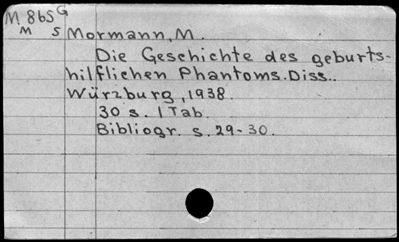 M 865 G
M S Mormann, M.
Die Geschichte des geburts-
hilflichen Phantoms. Diss..
Würzburg, 1938.
30 s. 1 Tab.
Bibliogr. s. 29-30.